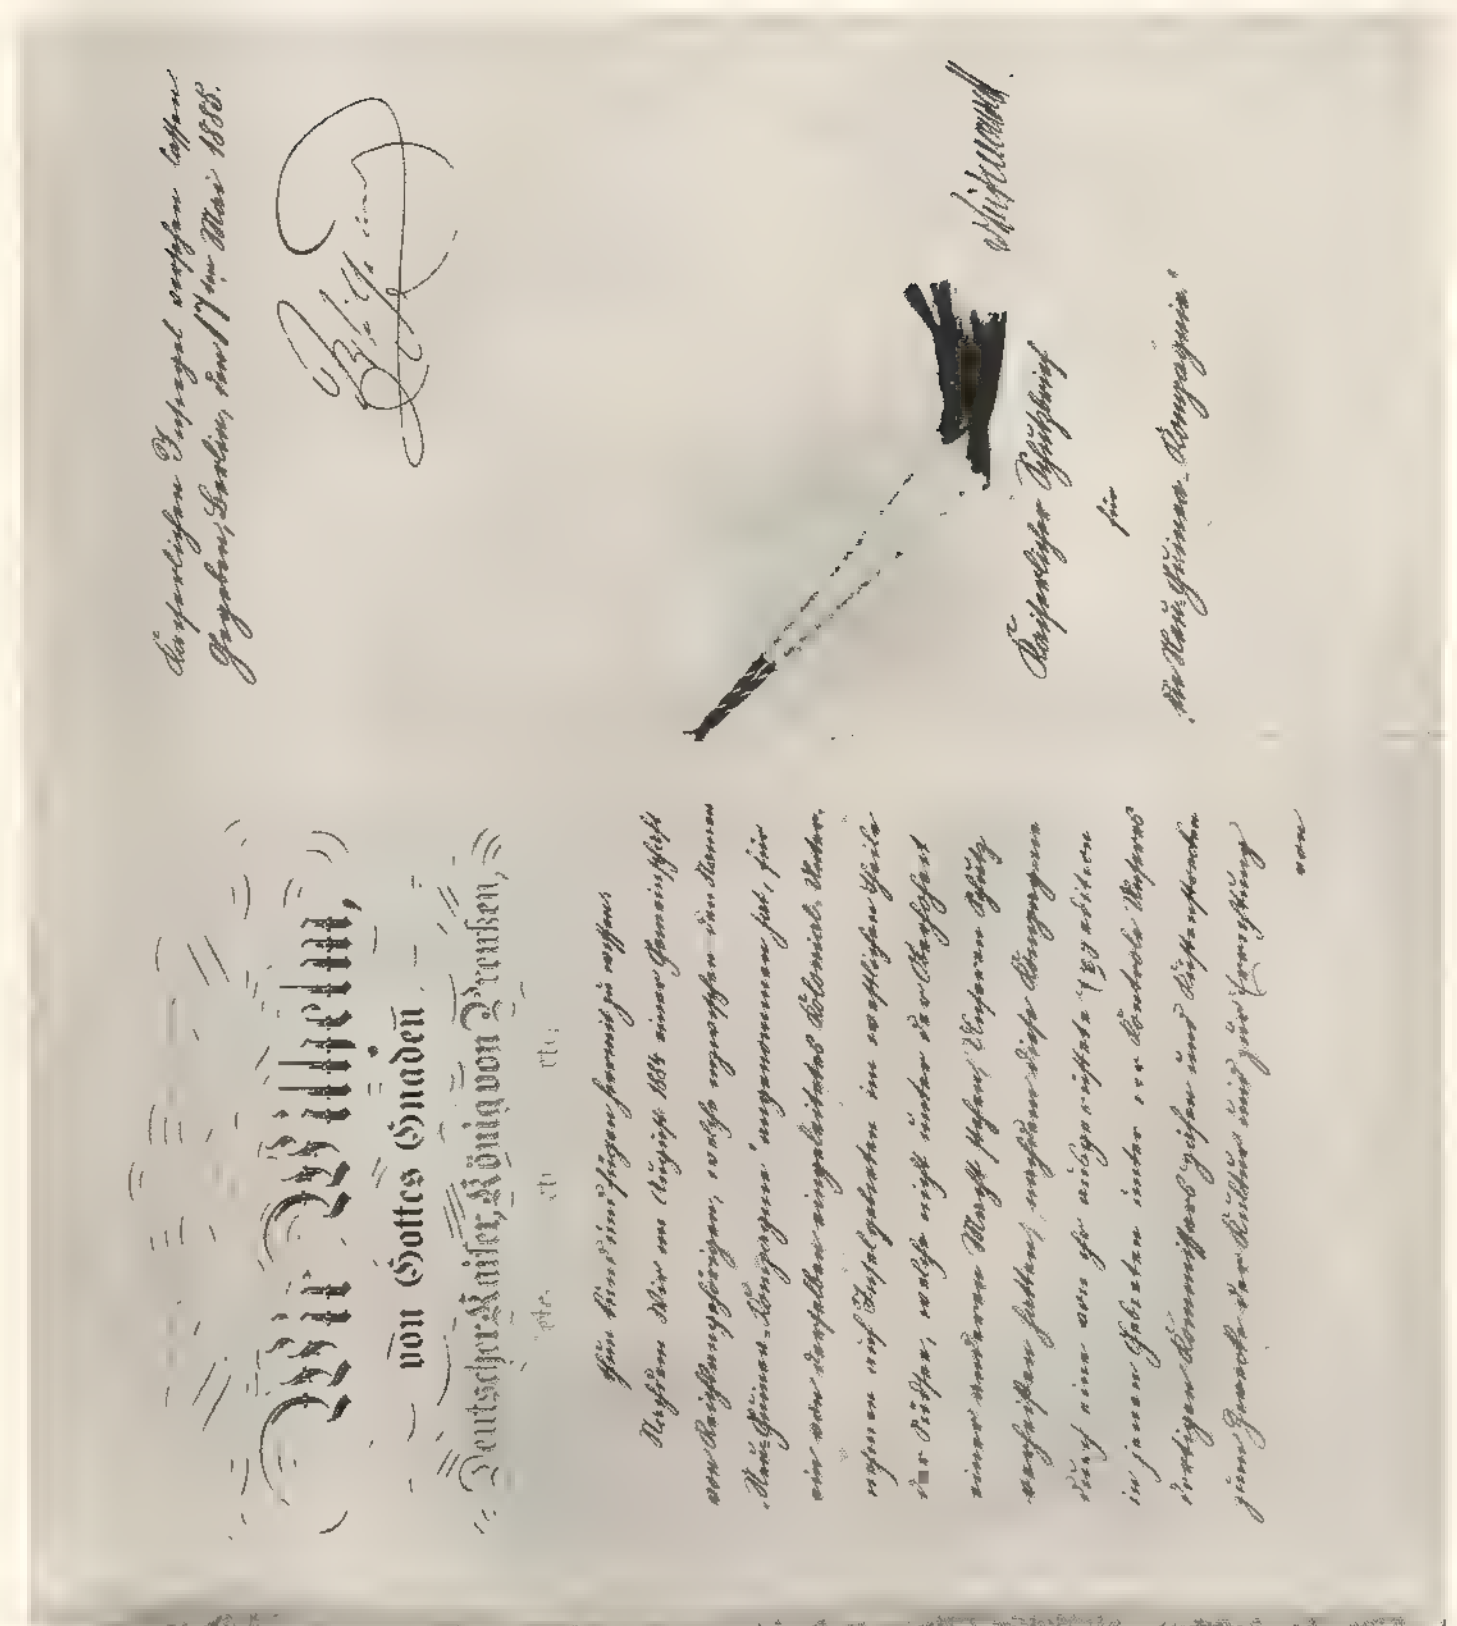 Wir Wilhelm,
von Gottes Gnaden
Deutscher Kaiser, König von Preußen,
etc. etc. etc.
thun kund und fügen hiermit zu wissen:
Nachdem Wir im August 1884 einer Gemeinschaft
von Reichsangehörigen, welche inzwischen den Namen
„Neu Guinea-Kompagnie“ angenommen hat, für
ein von derselben eingeleitetes Kolonial-Unter-
nehmen auf Inselgebieten im westlichen Theile
der Südsee, welche nicht unter der Oberhoheit
einer anderen Macht stehen, Unseren Schutz
verheißen hatten; nachdem diese Kompagnie
durch eine von ihr ausgerüstete Expedition
in jenen Gebieten unter der Kontrole Unseres
dortigen Kommissars Häfen und Küstenstrecken
zum Zwecke der Kultur und zur Errichtung
von
Kaiserlichen Insiegel versehen lassen
Gegeben, Berlin, den 17ten Mai 1885.
Wilhelm
v Bismarck.
Kaiserlicher Schutzbrief
für
„die Neu Guinea-Kompagnie.“